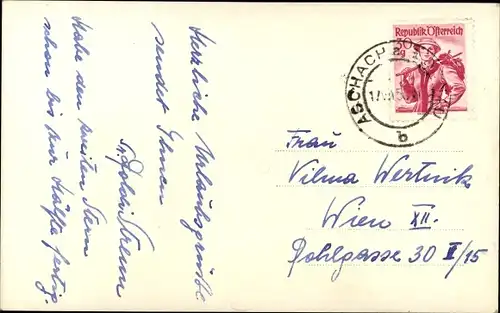 Herzliche Urlaubsgrüße
sendet Ihnen
Habe den zweiten Stern
schon bis zur Hälfte fertig.
Republik Österreich
ASCHACH
b
Frau
Vilma Wertnik
Wien XII.
Pohlgasse 30 II/15